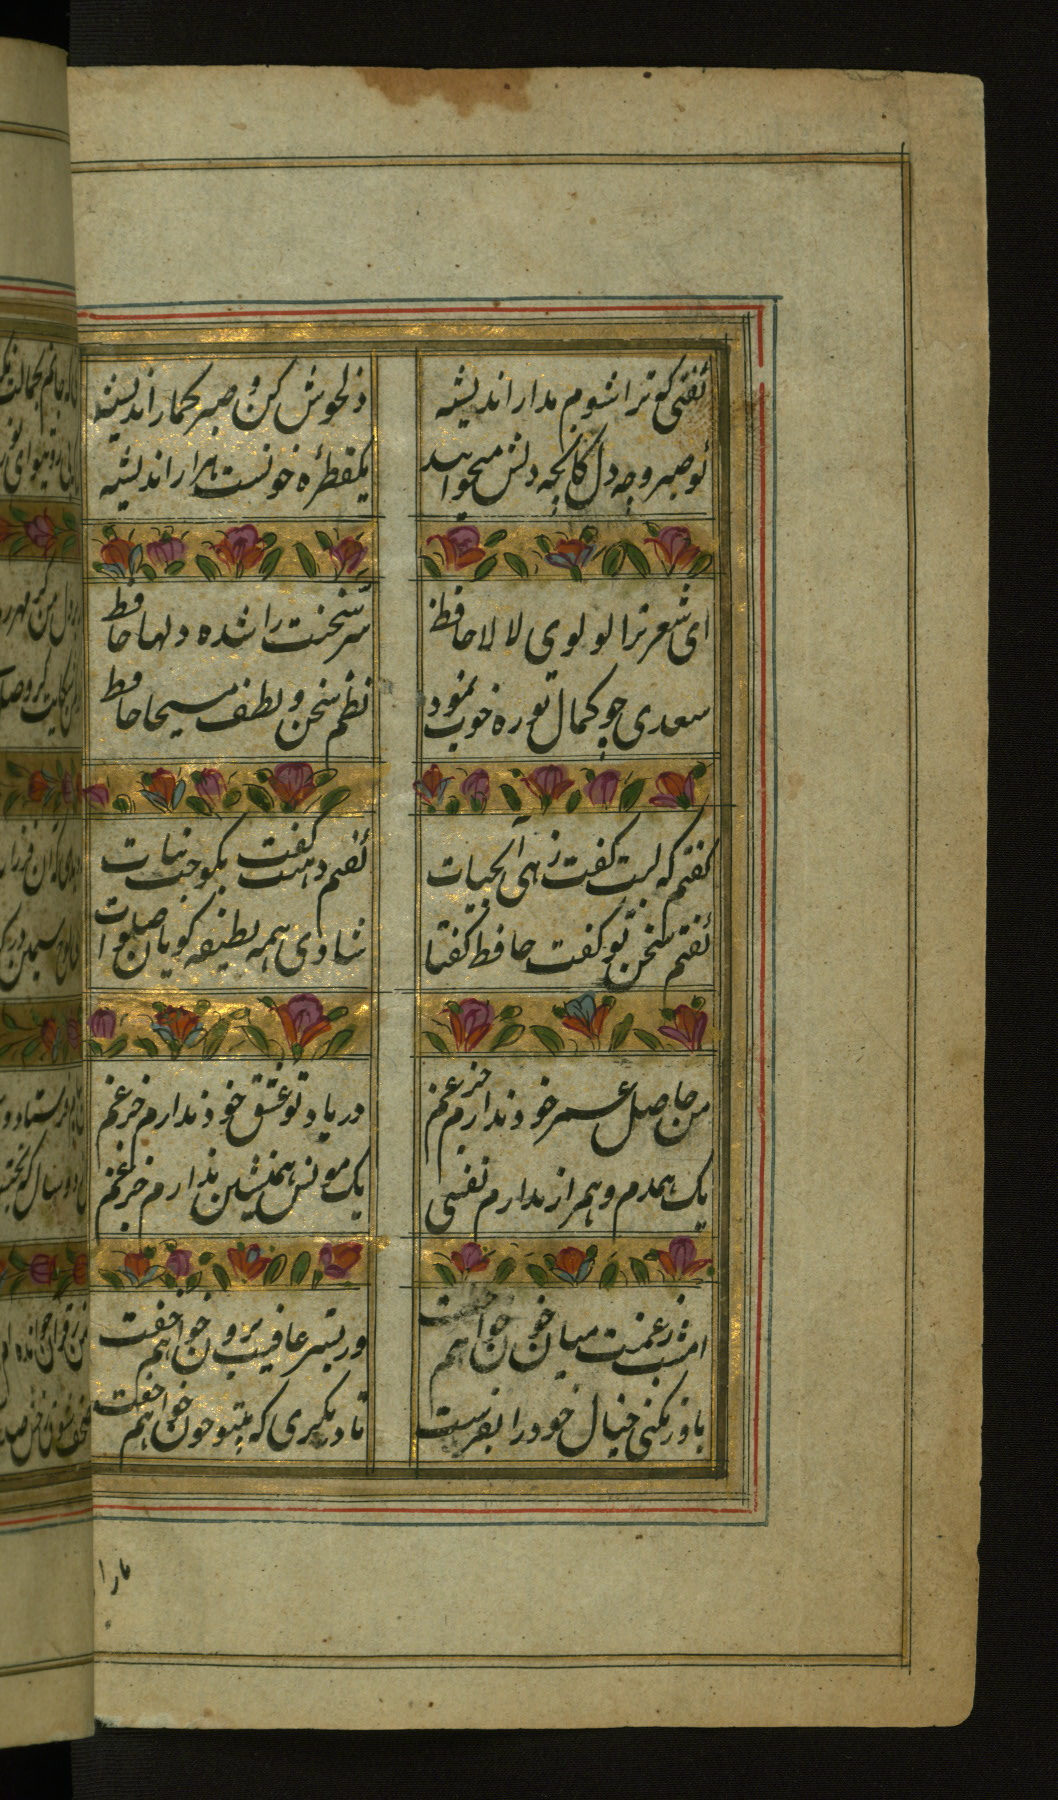 گفتی که ترا شوم مدار اندیشه
دلخوش کن و صبر کمار اندیشه
کو صبر و چه دل کانچه دلش میخوانند
یکقطرهٔ خونست هزار اندیشه
ای شعر ترا لولوی لالا حافظ
سر سخنت را شده دلها حافظ
سعدی چو کمال تو ره خوب نمود
نظم سخن و لطف مسیحا حافظ
گفتم که لبت گفت زهی آب حیات
گفتم دهنت گفت بگو حب نبات
گفتم سخن تو گفت حافظ گفتا
شادی همه لطیفه گویان صلوات
من حاصل عمر خود ندارم جز غم
در یاد تو عشق خود ندارم جز غم
یک همدم و همراز ندارم نفسی
یک مونس همنشین ندارم جز غم
امشب ز غمت میان خون خواهم خفت
وز بستر عافیت برون خواهم خفت
باور نکنی خیال خود را بفرست
تا در نگری که بیتو چون خواهم خفت
مارا